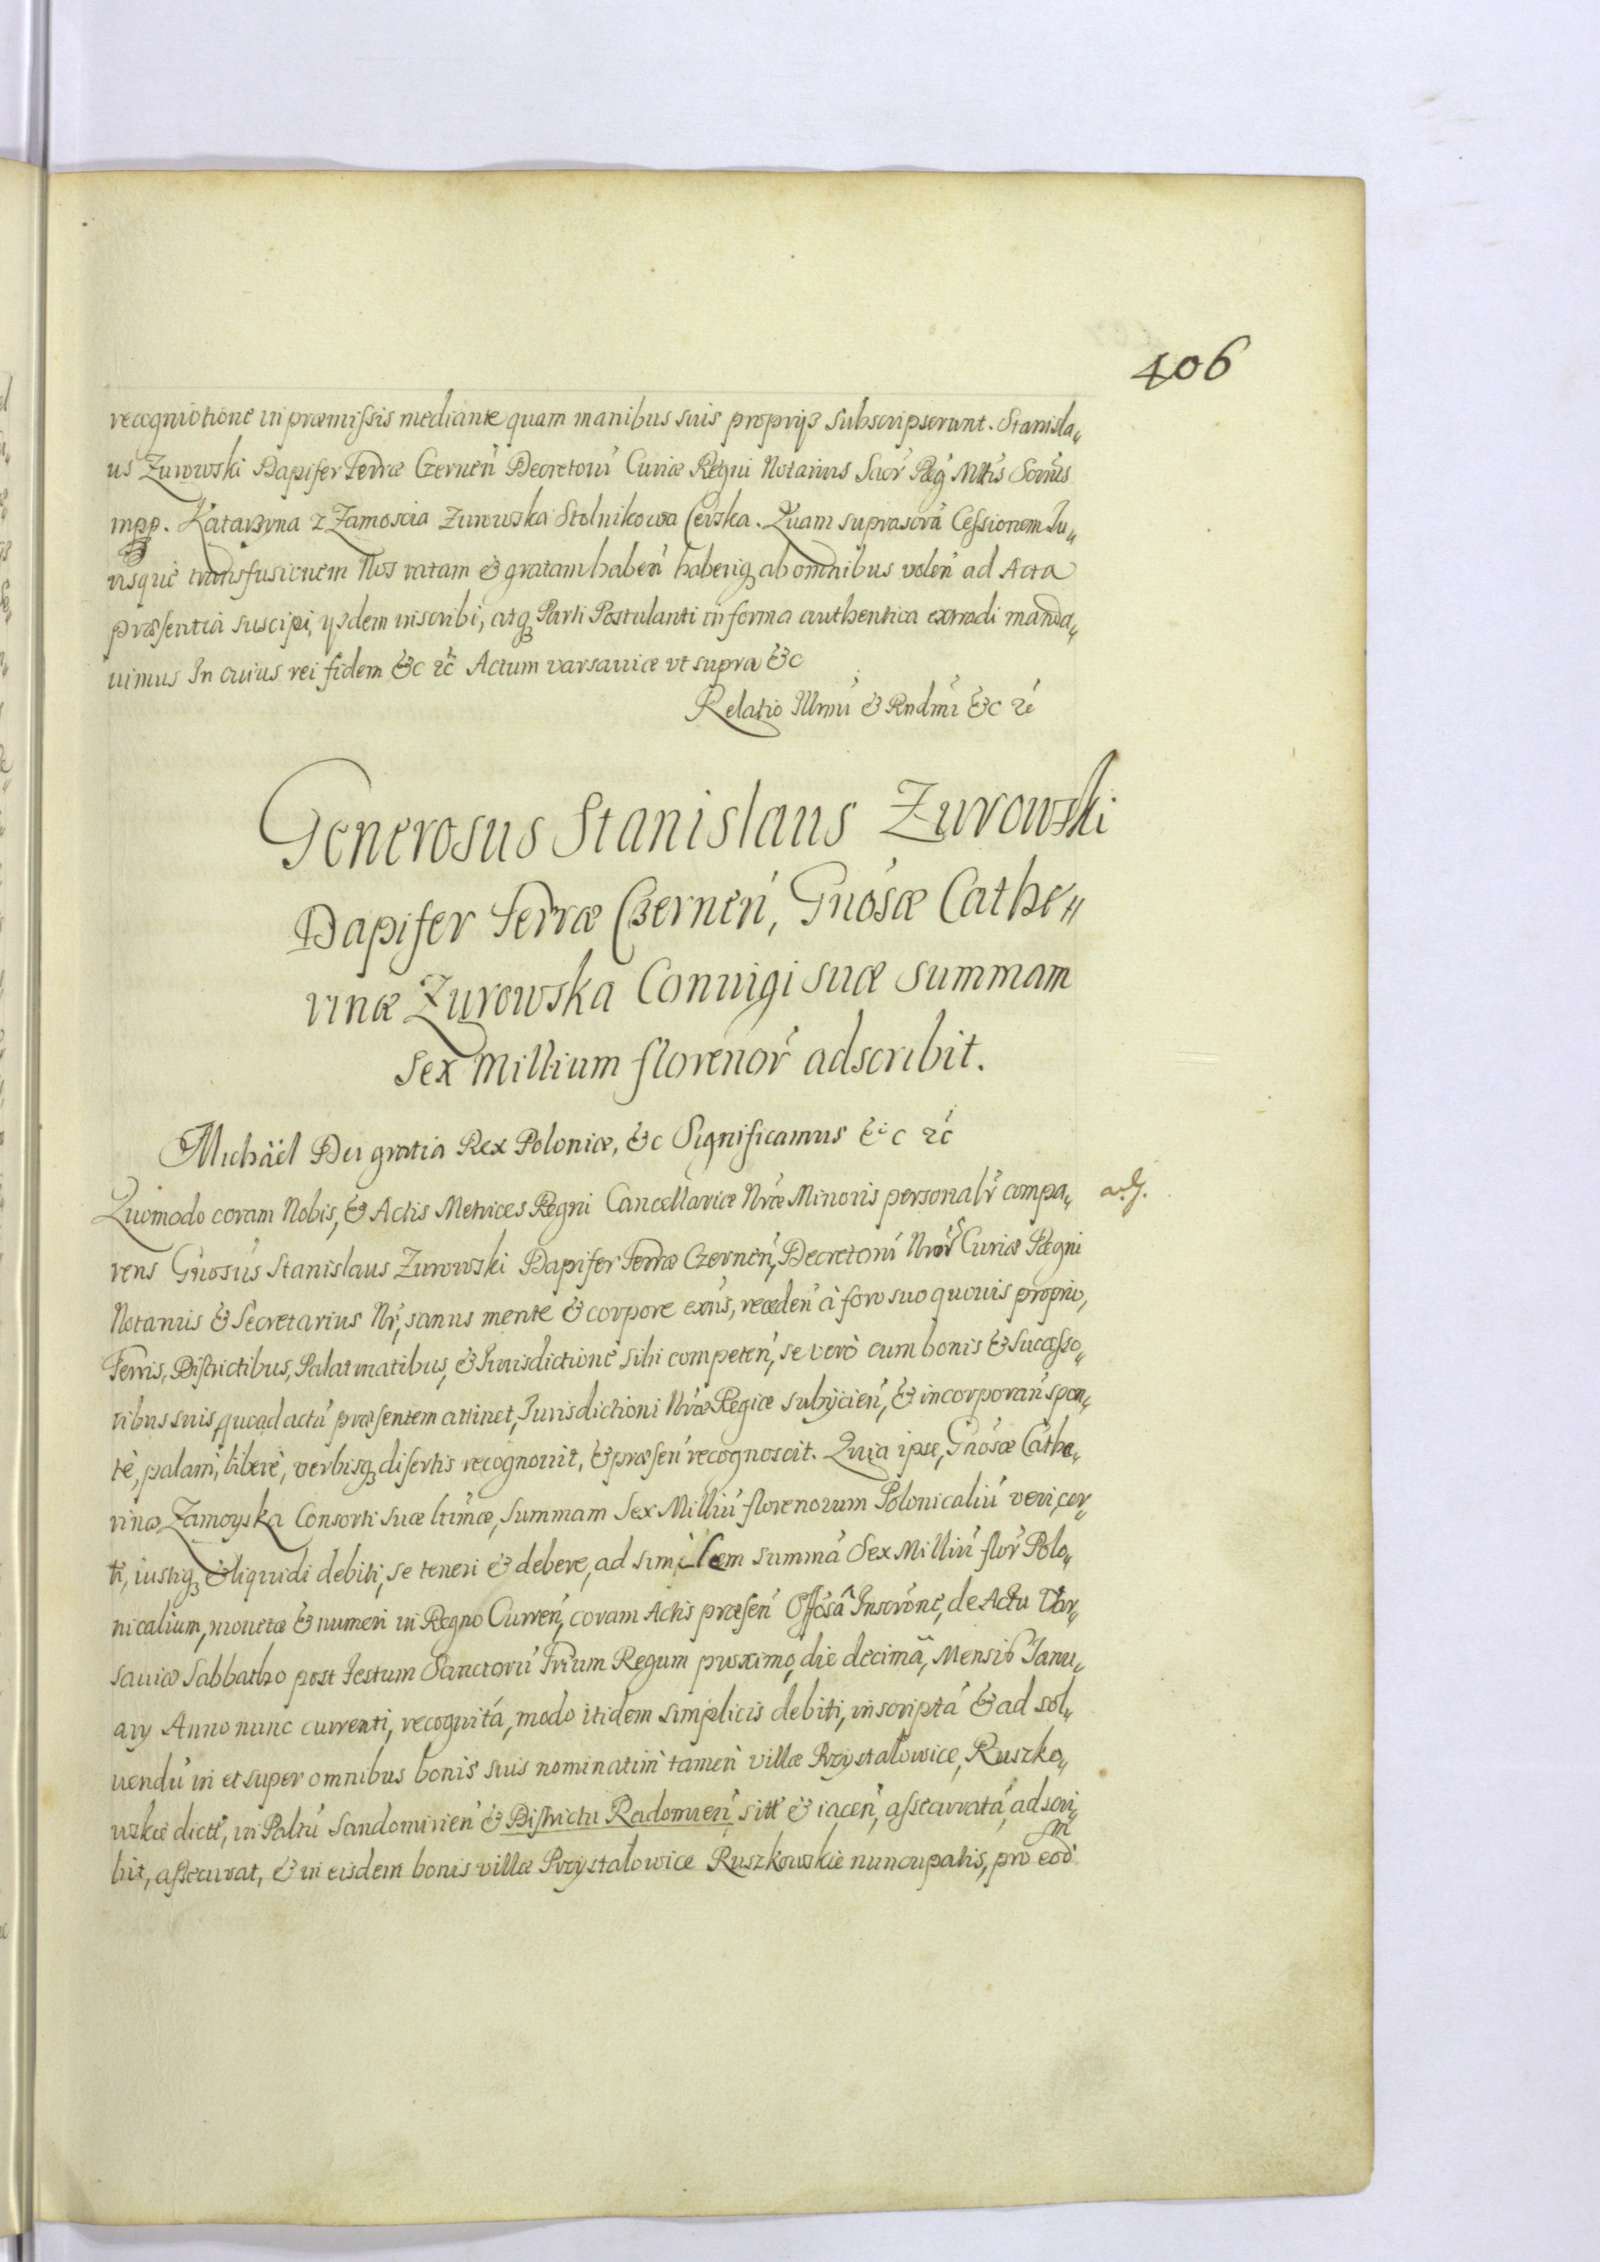 406
recognitione in præmissis mediante quam manibus suis proprijs subscripserunt. Stanisla„
us Zurowski Dapifer Terræ Czernen̄ Decretoru᷃ Curiæ Regni Notarius Sacr̃ Reg̃ Mttis Scrius
mpp. Katarzyna z Zamoscia Zurowska Stolnikowa Cerska. Quam suprascrã Cessionem Ju„
risque transfusionem Nos ratam & gratam haben̄ haberiq ab omnibus volen̄ ad Acta
præsentia suscipi, ysdem inscribi, atq Parti Postulanti in forma authentica extradi manda„
uimus In cuius rei fidem &c rc̃ Actum varsauiæ vt supra &c
Relatio Illmi & Rndmi &c rc̃
Generosus Stanislaus Zurowski
Dapifer Terræ Czernen̄, Gnosæ Cathe„
rinæ Zurowska Coniugi suæ summam
Sex Millium florenor̃ adscribit.
Michäel Dei gratia Rex Poloniæ, &c Significamus &c rc̃
Quomodo coram Nobis, & Actis Metrices Regni Cancellariæ Nræ Minoris personalr̃ compa„
rens Gnosus Stanislaus Zurowski Dapifer Terræ Czernen̄, Decretorũ Nror̃ Curiæ Regni
Notarius & Secretarius Nr̃, sanus mente & corpore exns, receden̄ à foro suo quouis proprio,
Terris, Districtibus, Palatinatibus, & Jurisdictione sibi competen̄, se verò cum bonis & Successo„
ribus suis, quoad actũ præsentem attinet, Jurisdictioni Nræ Regiæ subijcien̄, & incorporan̄ spon„
tè, palam, liberè, verbisq disertis recognouit, & præsen̄ recognoscit. Quia ipse, Gnosæ Cathe„
rinæ Zamoyska Consorti suæ ltimæ, summam Sex Milliũ florenorum Polonicaliũ veri, cer„
ti, iustiq & liquidi debiti, se teneri & debere, ad similem summã Sex Milliũ flor̃ Polo„
nicalium, monetæ & numeri in Regno Curren̄, coram Actis præsen̄ Offosã Inscrõne, de Actu Var„
sauiæ Sabbatho post festum Sanctorũ Trium Regum proximo, die decimã, Mensis Janu„
arij Anno nunc currenti, recognitã, modo itidem simplicis debiti, inscriptã & ad sol„
uendũ in et super omnibus bonis suis nominatim tamen villæ Przystałowice, Ruszko„
wskie dictt, in Paltũ Sandomirien̄ & Districtu Radomien̄ sitt & iacen̄, assecuratã, adscri„
bit, assecurat, & in eisdem bonis villæ Przystalowice Ruszkowskie nuncupatis, pro eod